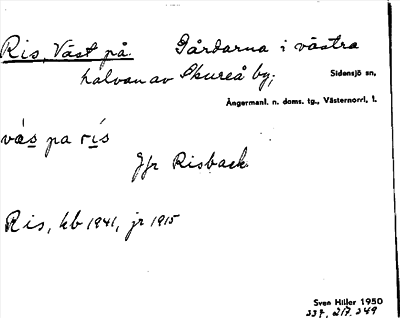 Ris, Väst på. Gårdarna i västra
halvan av Skureå by;
Sidensjö sn,
Ångermanl. n. doms. tg., Västernorrl. l.
väs pa ris
Jfr Risback.
Ris, kb 1941, jr 1915
Sven Hiller 1950
337, 217. 249